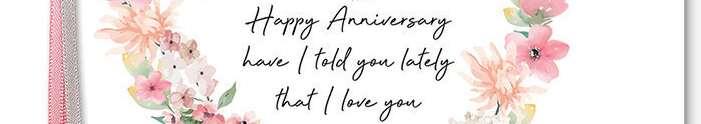 Happy Anniversary
have I told you lately
that I love you